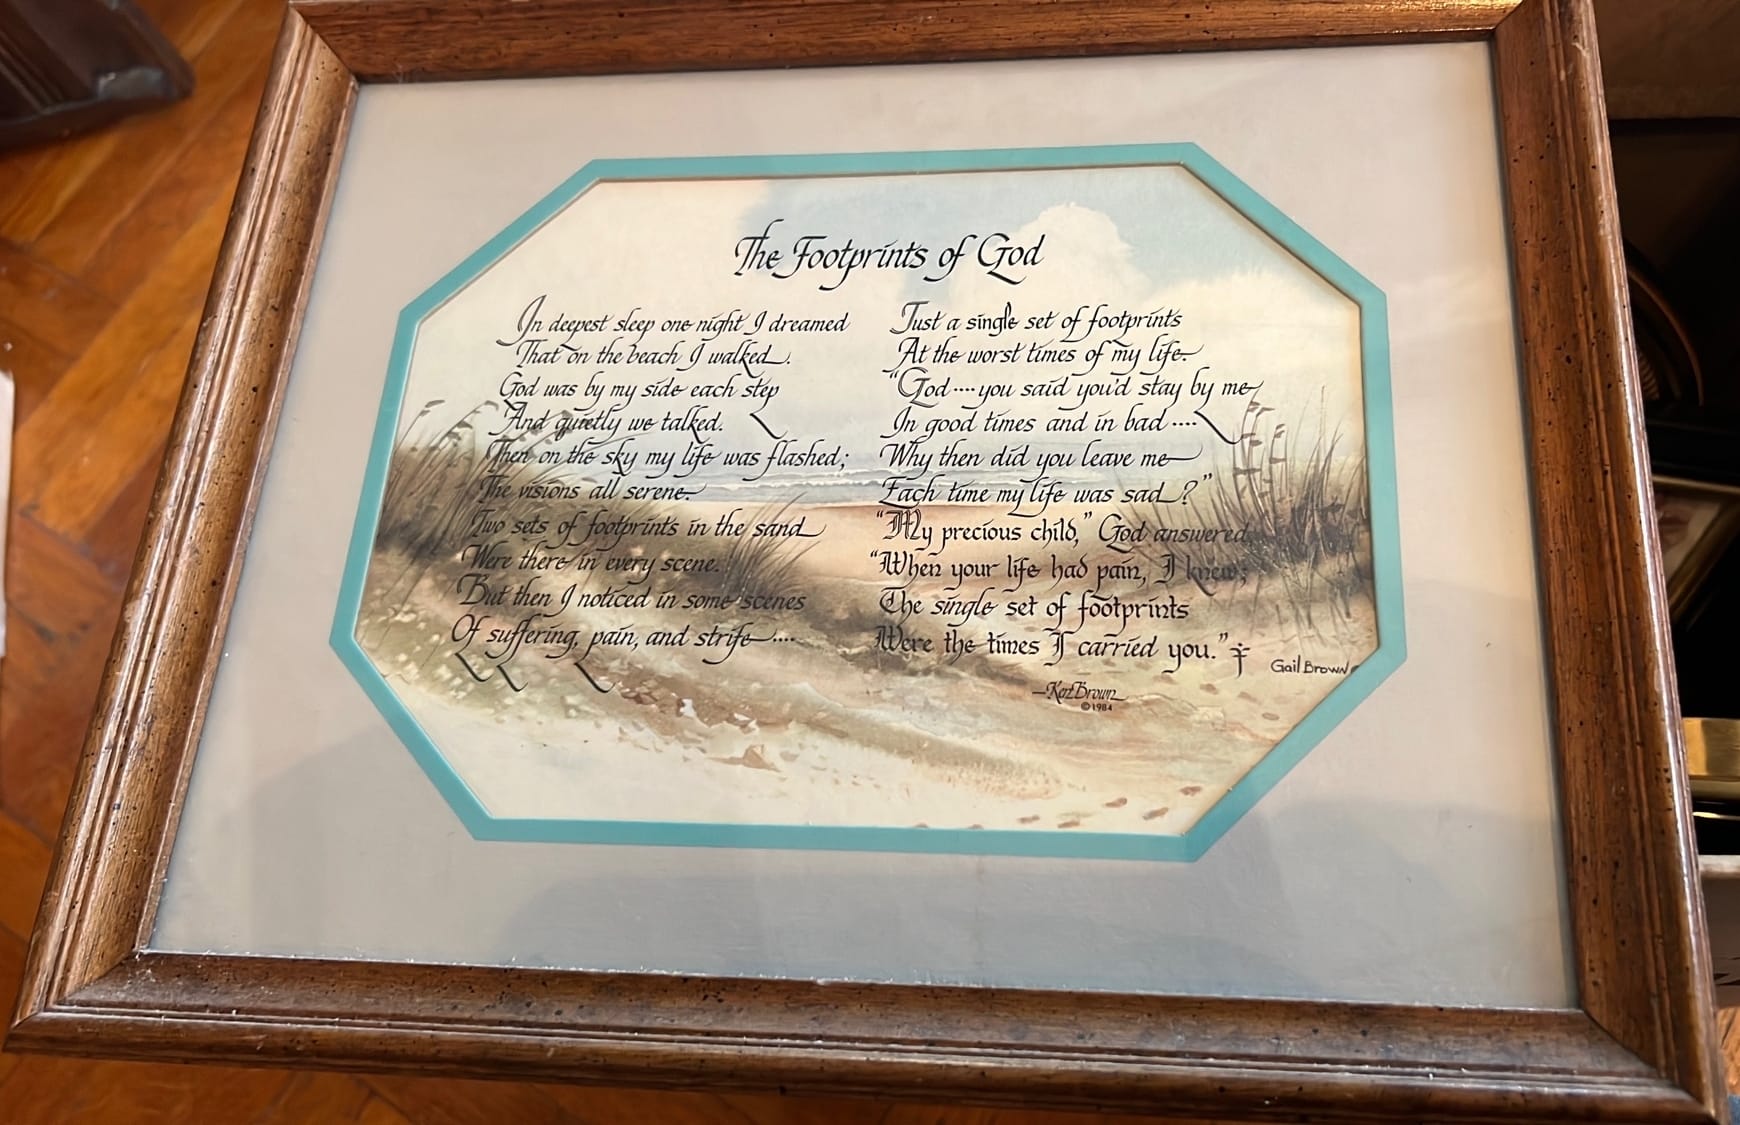 The Footprints of God
In deepest sleep one night I dreamed
That on the beach I walked.
God was by my side each step
And quietly we talked.
Then on the sky my life was flashed;
The visions all serene.
Two sets of footprints in the sand
Were there in every scene.
But then I noticed in some scenes
Of suffering, pain, and strife....
Just a single set of footprints
At the worst times of my life.
"God....you said you'd stay by me
In good times and in bad....
Why then did you leave me
Each time my life was sad?"
"My precious child," God answered,
"When your life had pain, I knew;
The single set of footprints
Were the times I carried you."
Gail Brown
—Ken Brown
©1984